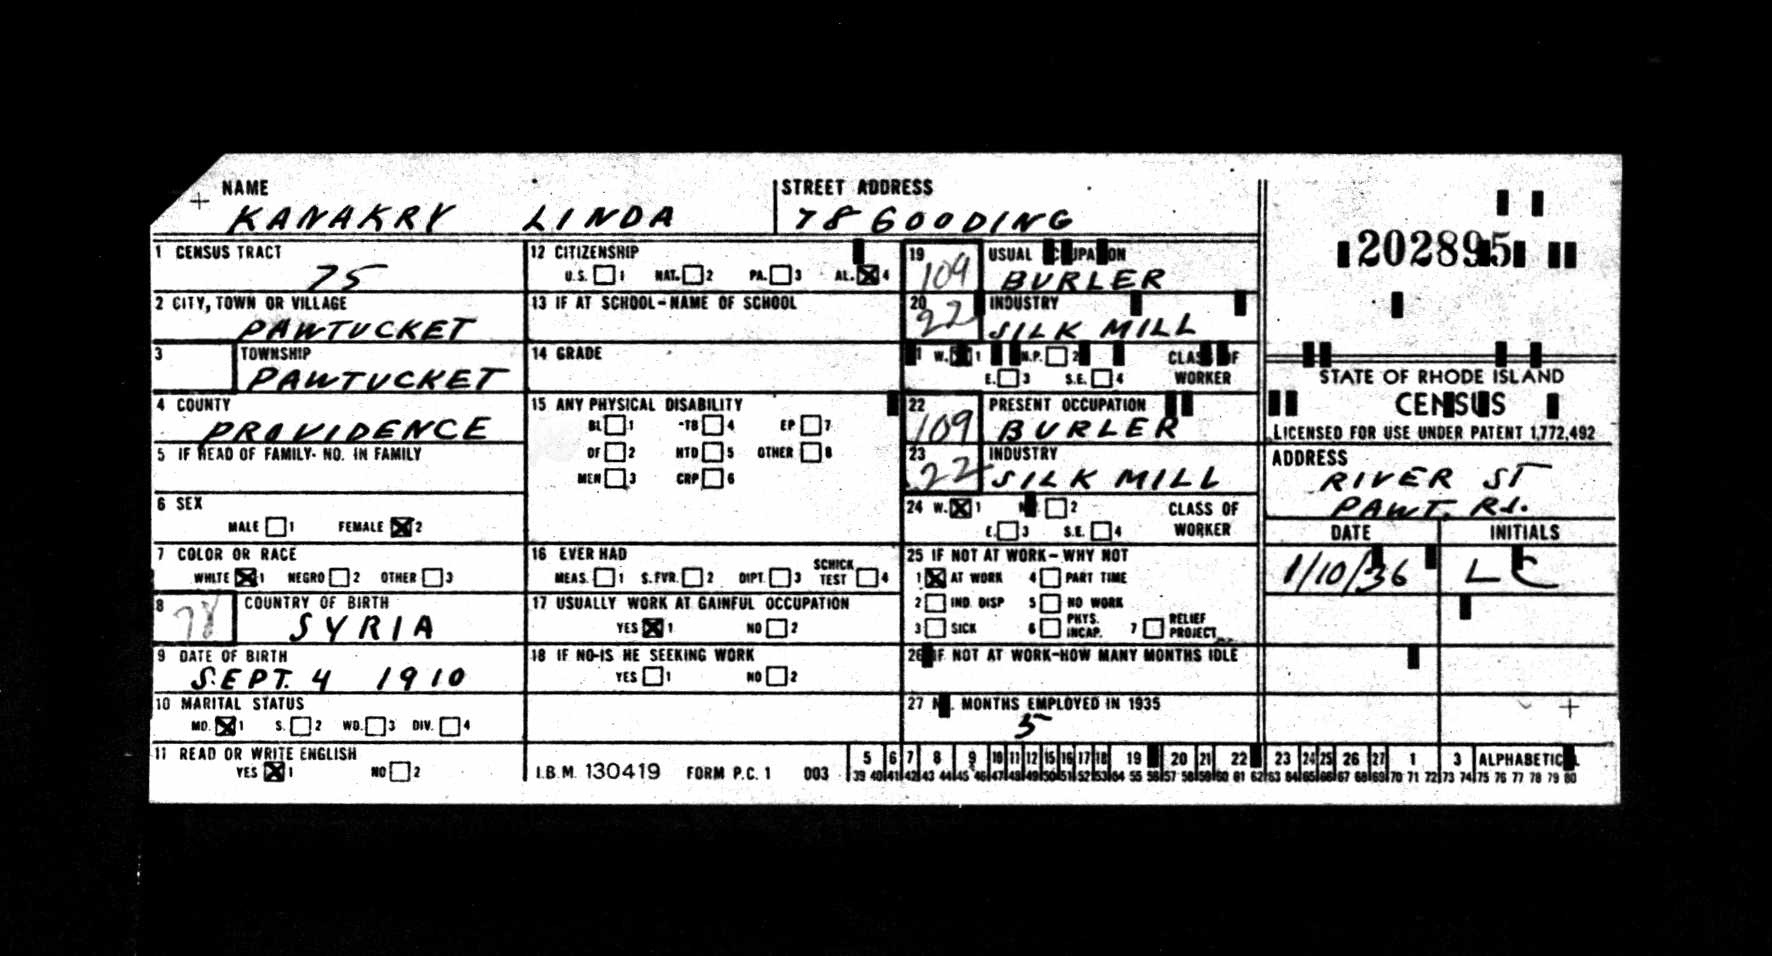 NAME STREET ADDRESS
KANAKRY LINDA 78 GOODING
1 CENSUS TRACT
75
2 CITY, TOWN OR VILLAGE
PAWTUCKET
3 TOWNSHIP
PAWTUCKET
4 COUNTY
PROVIDENCE
5 IF HEAD OF FAMILY- NO. IN FAMILY
6 SEX
MALE 1 FEMALE 2
7 COLOR OR RACE
WHITE 1 NEGRO 2 OTHER 3
8 78 COUNTRY OF BIRTH
SYRIA
9 DATE OF BIRTH
SEPT. 4 1910
10 MARITAL STATUS
MD. 1 S. 2 WD. 3 DIV. 4
11 READ OR WRITE ENGLISH
YES 1 NO 2
12 CITIZENSHIP
U.S. 1 NAT. 2 PA. 3 AL. 4
13 IF AT SCHOOL-NAME OF SCHOOL
14 GRADE
15 ANY PHYSICAL DISABILITY
BL 1 -TB 4 EP 7
DF 2 HTD 5 OTHER 8
MEN 3 CRP 6
16 EVER HAD
MEAS. 1 S.FVR. 2 DIPT. 3 SCHICK TEST 4
17 USUALLY WORK AT GAINFUL OCCUPATION
YES 1 NO 2
18 IF NO-IS HE SEEKING WORK
YES 1 NO 2
I.B.M. 130419 FORM P.C. 1 003
19 109 USUAL OCCUPATION
BURLER
20 22 INDUSTRY
SILK MILL
W. 1 N.P. 2 CLASS OF
E. 3 S.E. 4 WORKER
22 109 PRESENT OCCUPATION
BURLER
23 22 INDUSTRY
SILK MILL
24 W. 1 2 CLASS OF
E. 3 S.E. 4 WORKER
25 IF NOT AT WORK-WHY NOT
1 AT WORK 4 PART TIME
2 IND. DISP 5 NO WORK
3 SICK 6 PHYS. INCAP. 7 RELIEF PROJECT
26 IF NOT AT WORK-HOW MANY MONTHS IDLE
27 MONTHS EMPLOYED IN 1935
5
5 6 7 8 9 10 11 12 15 16 17 18 19 20 21 22 23 24 25 26 27 1 3 ALPHABETICAL
39 40 41 42 43 44 45 46 47 48 49 50 51 52 53 54 55 56 57 58 59 60 61 62 63 64 65 66 67 68 69 70 71 72 73 74 75 76 77 78 79 80
202895
STATE OF RHODE ISLAND
CENSUS
LICENSED FOR USE UNDER PATENT 1,772,492
ADDRESS
RIVER ST
PAWT. R.I.
DATE INITIALS
1/10/36 LC